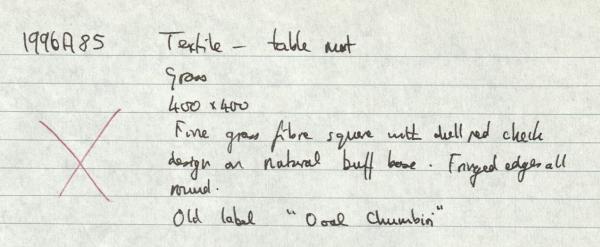 1996A85 Textile - table mat
Grass
400 x 400
Fine grass fibre square with dull red check
design on natural buff base. Fringed edges all
round.
Old label "Ooal Chumbin"